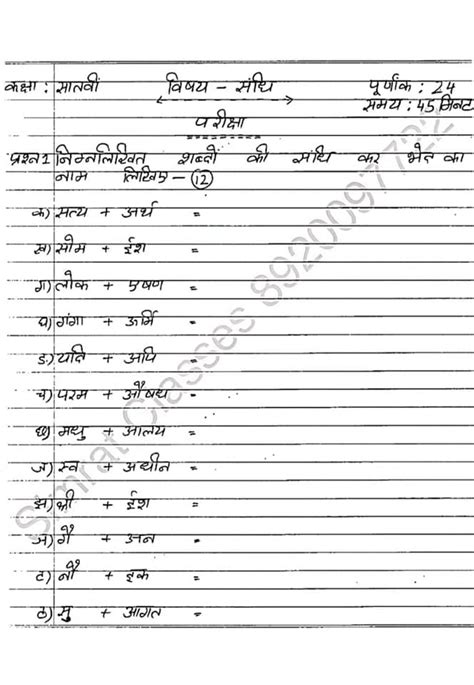 कक्षा : सातवीं विषय - संधि पूर्णांक : 24
समय : 45 मिनट
परीक्षा
प्रश्न 1 निम्नलिखित शब्दों की संधि कर भेद का
नाम लिखिए - (12)
क) सत्य + अर्थ =
ख) सोम + ईश =
ग) लोक + एषण =
घ) गंगा + ऊर्मि =
ङ) यदि + अपि =
च) परम + औषध -
छ) मधु + आलय =
ज) स्व + अधीन =
झ) श्री + ईश =
ञ) गै + अन =
ट) नौ + इक =
ठ) सु + आगत =
Simrat Classes 8920097722